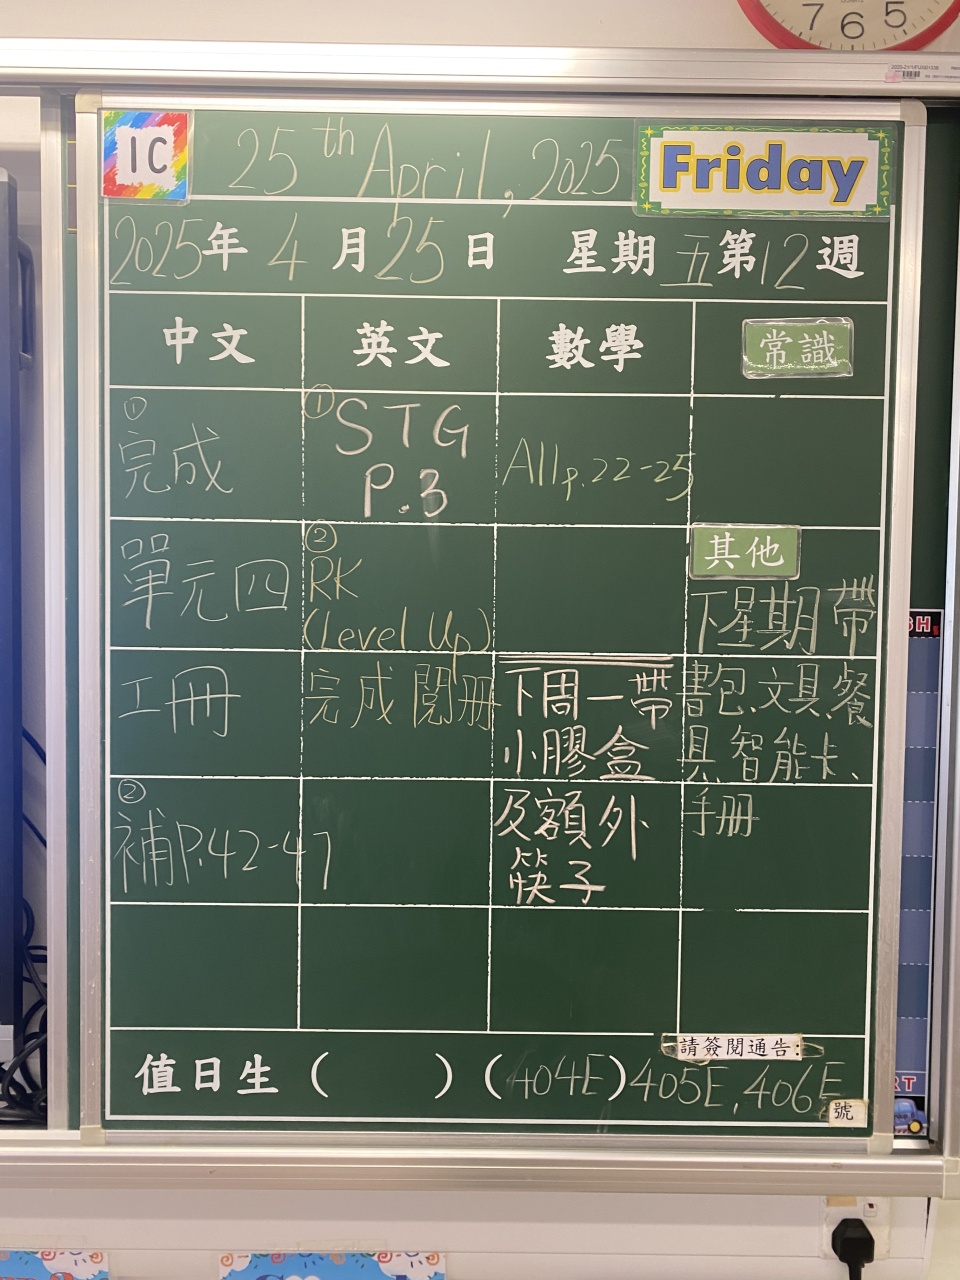 7 6 5
1C
25th April, 2025
Friday
2025年4月25日 星期五第12週
中文
英文
數學
常識
①
完成
單元四
工冊
②
補P.42-47
①
STG
P.3
②
RK
(Level Up)
完成閱冊
All p.22-25
下周一帶
小膠盒
及額外
筷子
其他
下星期帶
書包、文具、餐
具、智能卡、
手冊
請簽閱通告:
值日生 ( ) (404E) 405E, 406E
號